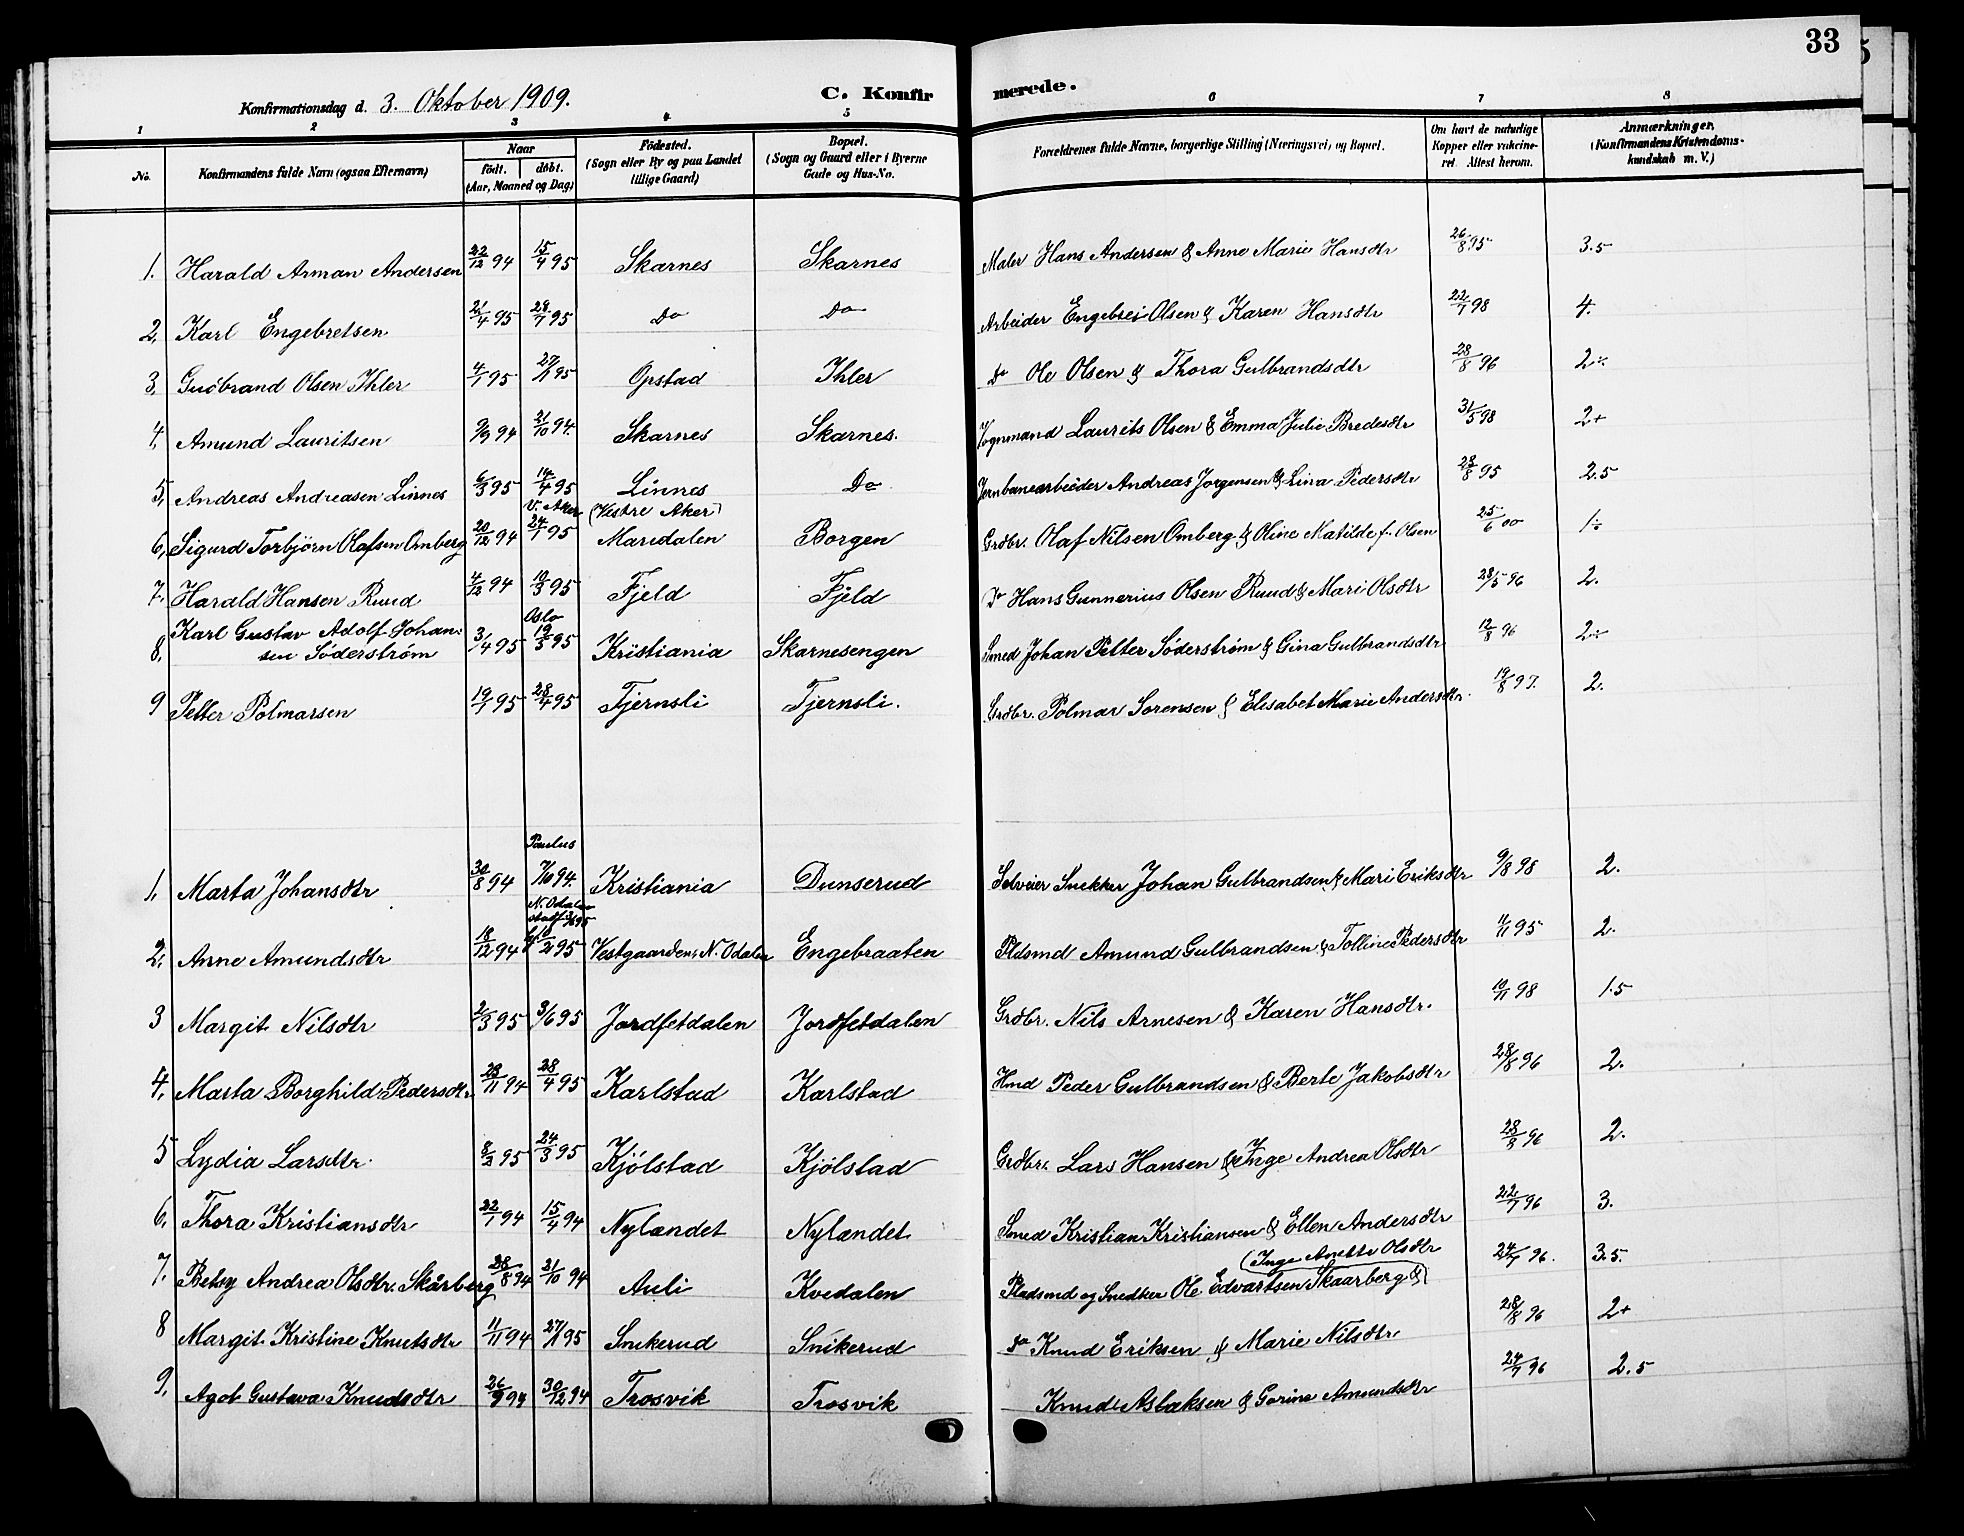 33
Konfirmationsdag d. 3. Oktober 1909. C. Konfirmerede.
1 2 3 4 5 6 7 8
No. Konfirmandens fulde Navn (ogsaa Efternavn) Naar födt. döbt. (Aar, Maaned og Dag) Födested. (Sogn eller By og paa Landet tillige Gaard) Bopæl. (Sogn og Gaard eller i Byerne Gade og Hus-No. Forældrenes fulde Navne, borgerlige Stilling (Næringsvei) og Bopæl. Om havt de naturlige Kopper eller vaccineret. Attest herom. Anmærkninger. (Konfirmandens Kristendomskundskab m. V.)
1. Harald Arman Andersen 22/12 94 15/4 95 Skarnes Skarnes Maler Hans Andersen & Anne Marie Hansdtr 26/8 95 3.5
2. Karl Engebretsen 21/4 95 28/7 95 Do Do Arbeider Engebret Olsen & Karen Hansdtr 22/7 98 4.
3. Gudbrand Olsen Ihler 4/1 95 Opstad Ihler Do Ole Olsen & Thora Gulbrandsdtr 28/8 96 2÷
4. Amund Lauritsen 9/9 94 21/10 94. Skarnes Skarnes. Vognmand Laurits Olsen & Emma Julie Bredesdtr 31/5 98 2+
5. Andreas Andreasen Linnes 6/3 95 14/4 95 Linnes Do Jernbanearbeider Andreas Jorgensen & Lina Pedersdtr 28/8 95 2.5
V. Aker (Vestre Aker)
6. Sigurd Torbjörn Olafsen Omberg 20/12 94 24/7 95 Maridalen Borgen Grdbr. Olaf Nilsen Omberg & Oline Matilde f. Olsen 25/6 00 1÷
7. Harald Hansen Ruud 4/12 94 10/3 95 Fjeld Fjeld Do Hans Gunnerius Olsen Ruud & Mari Olsdtr 28/5 96 2.
Oslo
8. Karl Gustav Adolf Johansen Söderström 3/4 95 19/5 95 Kristiania Skarnesengen Smed Johan Petter Söderström & Gina Gulbrandsdtr 12/8 96 2÷
9 Petter Polmarsen 19/1 95 28/4 95 Tjernsli Tjernsli. Grdbr. Polmar Sorensen & Elisabet Marie Andersdtr. 19/8 97. 2.
Paulus
1. Marta Johansdtr 30/8 94 7/10 94. Kristiania Dunserud Selveier Snekker Johan Gulbrandsen & Mari Eriksdtr 9/8 98 2.
N. Odalen
2. Anne Amundsdtr 18/12 94 95 Vestgaarden, N. Odalen Engebraaten Pldsmd Amund Gulbrandsen & Tolline Pedersdtr 11/11 95 2.
3 Margit Nilsdtr 2/3 95 3/6 95 Jordfetdalen Jordfetdalen Grdbr. Nils Arnesen & Karen Hansdtr. 10/11 98 1.5
4. Marta Borghild Pedersdtr. 28/11 94 28/4 95 Karlstad Karlstad Hmd Peder Gulbrandsen & Berte Jakobsdtr 28/8 96 2.
5 Lydia Larsdtr. 8/2 95 24/3 95 Kjölstad Kjölstad Grdbr. Lars Hansen & Inge Andrea Olsdtr 28/8 96 2.
6. Thora Kristiansdtr 22/1 94 15/4 94 Nylandet Nylandet. Smed Kristian Kristiansen & Ellen Andersdtr 22/7 96 3.
(Inge Anette Olsdtr
7. Betsy Andrea Olsdtr. Skårberg 28/8 94 21/10 94 Auli Kvedalen Pladsmd og Snedker Ole Edvartsen Skaarberg & 24/7 96. 3.5.
8 Margit Kristine Knutsdtr 11/11 94 27/1 95 Snikerud Snikerud Do Knud Eriksen & Marie Nilsdtr. 28/8 96 2+
9. Agot Gustava Knudsdtr 26/9 94 30/12 94 Trosvik Trosvik Knud Aslaksen & Gorine Amundsdtr 24/7 96 2.5